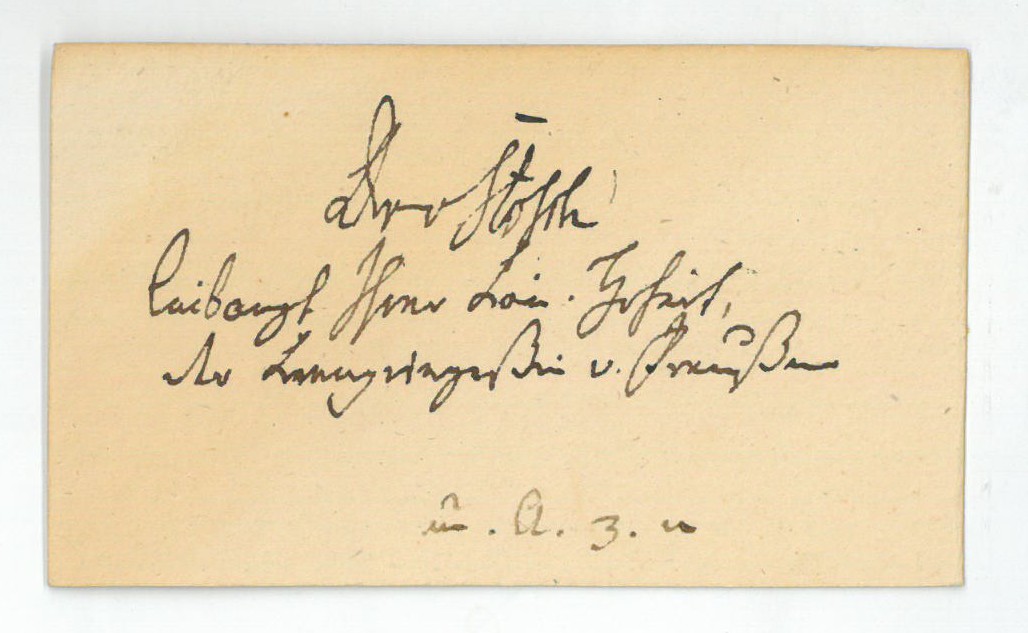 Dr v Stosch
Leibarzt Ihrer Kön. Hoheit,
der Kronprinzeßin v. Preußen
u. A. z. n